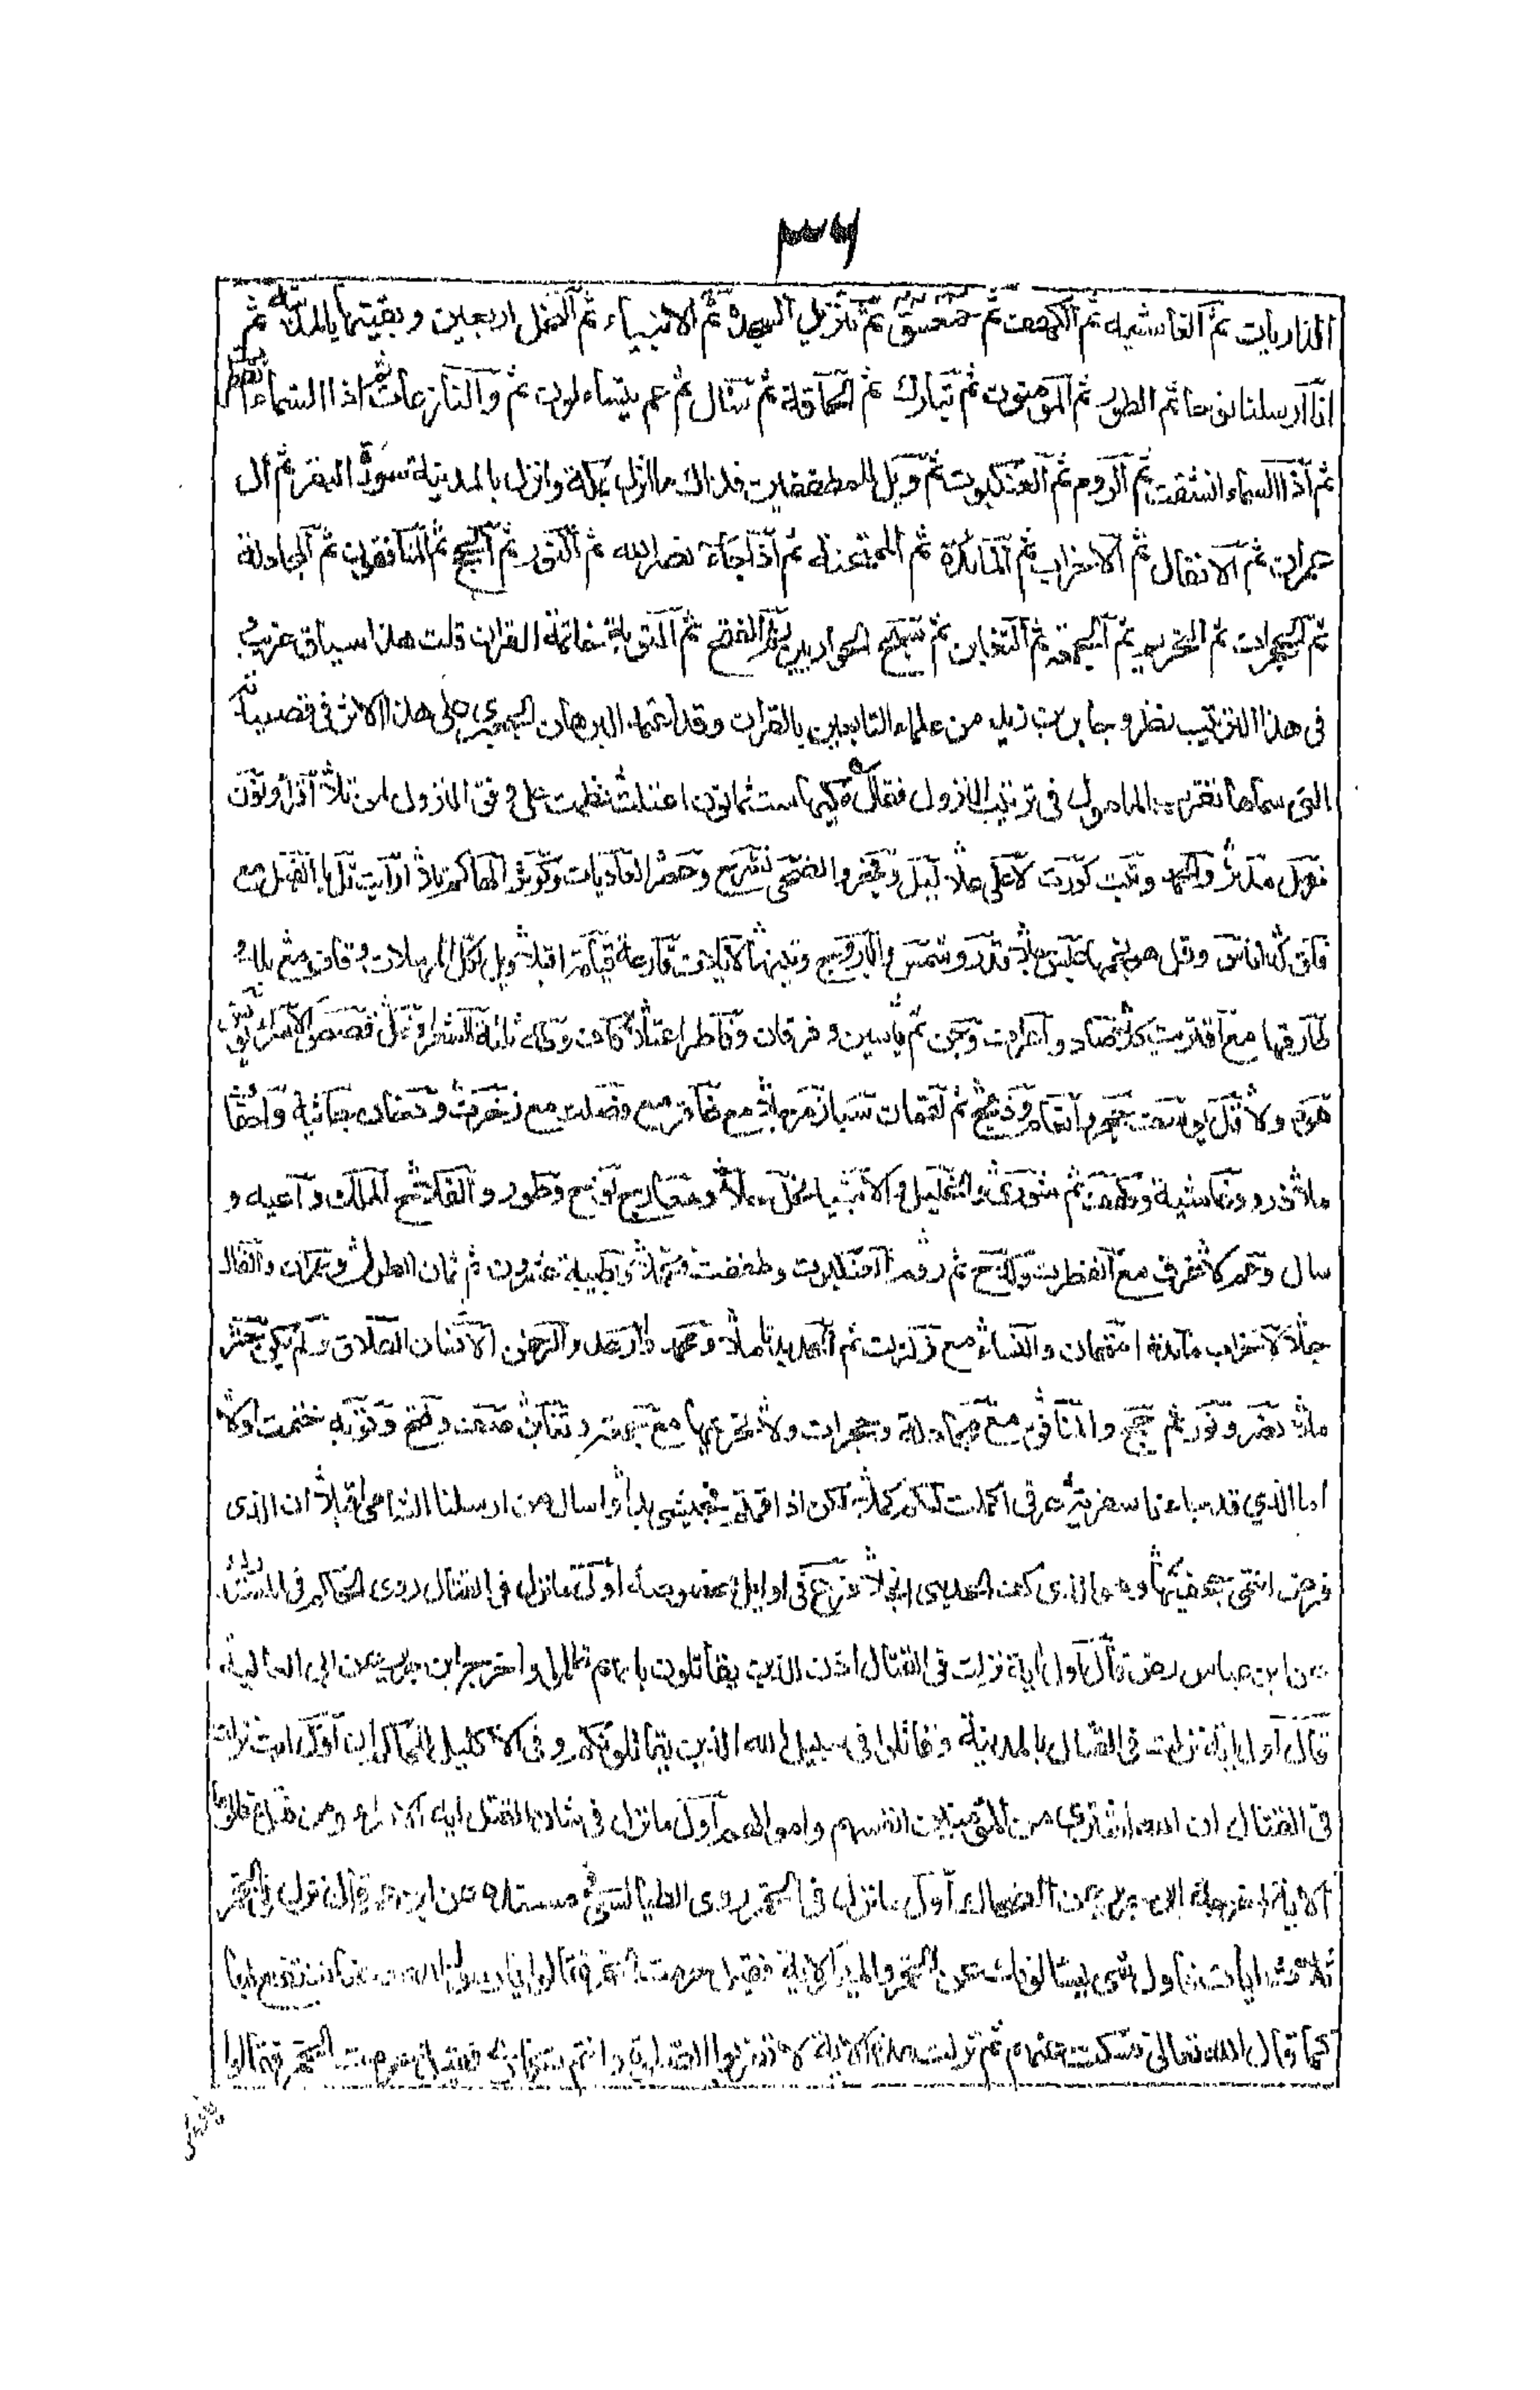 ٣٦
الذاريات ثم الغاشيه ثم الكهف ثم حمعسق ثم تنزيل السجدة ثم الانبياء ثم النحل اربعين وبقيتها بالمدينة ثم
انا ارسلنا نوحا ثم الطور ثم المومنون ثم تبارك ثم الحاقة ثم سال ثم عم يتساءلون ثم والنازعات ثم اذا السماء انفطرت
ثم اذا السماء انشقت ثم الروم ثم العنكبوت ثم ويل للمطففين فذاك ما انزل بمكة وانزل بالمدينة سورة البقرة ثم ال
عمران ثم الانفال ثم الاحزاب ثم المائدة ثم الممتحنة ثم اذا جاء نصر الله ثم النور ثم الحج ثم المنافقون ثم المجادلة
ثم الحجرات ثم التحريم ثم الجمعة ثم التغابن ثم سبح الحواريين ثم الفتح ثم التوبة خاتمة القران قلت هذا سياق غريب
فى هذا الترتيب نظر وجابر بن زيد من علماء التابعين بالقران وقد اعتمد البرهان الجعبرى على هذا الاثر فى قصيدته
التى سماها تقريب المامول فى ترتيب النزول فقال مكيها ست ثمانون اعتلت نظمت على وفق النزول لمن تلا اقرا ونون
مزمل مدثر والحمد وتبت كورت الاعلى علا ليل وفجر والضحى شرح وعصر العاديات وكوثر الهاكم تلا ارايت قل بالفيل مع
فلق كذا ناس وقل هو نجمها عبس وقدر وشمس والبروج وتينها لايلاف قارعة قيامة اقبلا ويل لكل المرسلات وقاف مع بلد
طارقها مع اقتربت كلا صاد واعراف وجن ثم ياسين وفرقان وفاطر اعتلا كاف وطه ثلة الشعرا ونمل قصص الاسرا يونس
هود ولا قل يوسف حجر وانعام وذبح ثم لقمان سبا زمر جلا مع غافر مع فصلت مع زخرف ودخان جاثية واحقاف
تلا ذرو وغاشية وكهف ثم شورى والخليل والانبيا نحل حلا ومعارج نوح وطور والفلاح الملك واعيه و
سال وعم غرق مع انفطرت وكدح ثم روم العنكبوت وطففت فتكملا وطيبة عشرون ثم ثمان الطولى وعمران وانفال
جلا لاحزاب مائدة امتحان والنساء مع زلزلت ثم الحديد تاملا ومحمد والرعد والرحمن الانسان الطلاق ولم يكن حشر
ملا نصر ونور ثم حج والمنافق مع مجادلة وحجرات ولا تحريمها مع جمعة وتغابن صف وفتح وتوبة ختمت اولا
اما الذي قد جاءنا سفريه عرفى اكملت لكم كملا لكن اذا قمتم فجيشى بدا واسال من ارسلنا الشامى اقبلا ان الذى
فرض انتمى جحفيها وهو الذى كف الحديبى انجلا فرع فى اوايل مخصوصة اول ما نزل فى القتال روى الحاكم فى المستدرك
عن ابن عباس رض قال اول اية نزلت فى القتال اذن للذين يقاتلون بانهم ظلموا واخرج ابن جرير عن ابى العالية
قال اول اية نزلت فى القتال بالمدينة وقاتلوا فى سبيل الله الذين يقاتلونكم وفى الاكليل للحاكم ان اول اية نزلت
فى القتال ان الله اشترى من المؤمنين انفسهم واموالهم اول ما نزل فى شان القتل اية الاسراء ومن قتل مظلوما
الاية اخرجه ابن جرير عن الضحاك اول ما نزل فى الخمر روى الطيالسى فى مسنده عن ابن عمر قال نزل فى الخمر
ثلاث ايات فاول شى يسالونك عن الخمر والميسر الاية فقيل حرمت الخمر فقالوا يا رسول الله دعنا ننتفع بها
كما قال الله تعالى فسكت عنهم ثم نزلت هذه الاية لا تقربوا الصلوة وانتم سكارى فقيل حرمت الخمر فقالوا